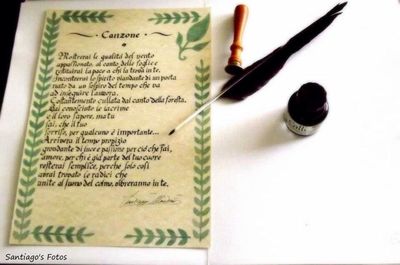 Canzone
Mostrerai le qualità del vento
appassionato, al canto delle foglie e
restituirai la pace a chi la trovò in te.
Incontrerai lo spirito viandante di un poeta
nato da un sospiro del tempo che va
ad inseguire l'aurora.
Costantemente cullata dal canto della foresta.
Hai conosciuto le lacrime
e il loro sapore, ma tu
sai, che il tuo
sorriso, per qualcuno è importante...
Arriverà il tempo propizio
grondante di luce e passione per ciò che fai,
amore, per chi è già parte del tuo cuore
resterai semplice, perché solo così
avrai trovato le radici che
unite al fumo del cosmo, vibreranno in te.
Santiago's Fotos